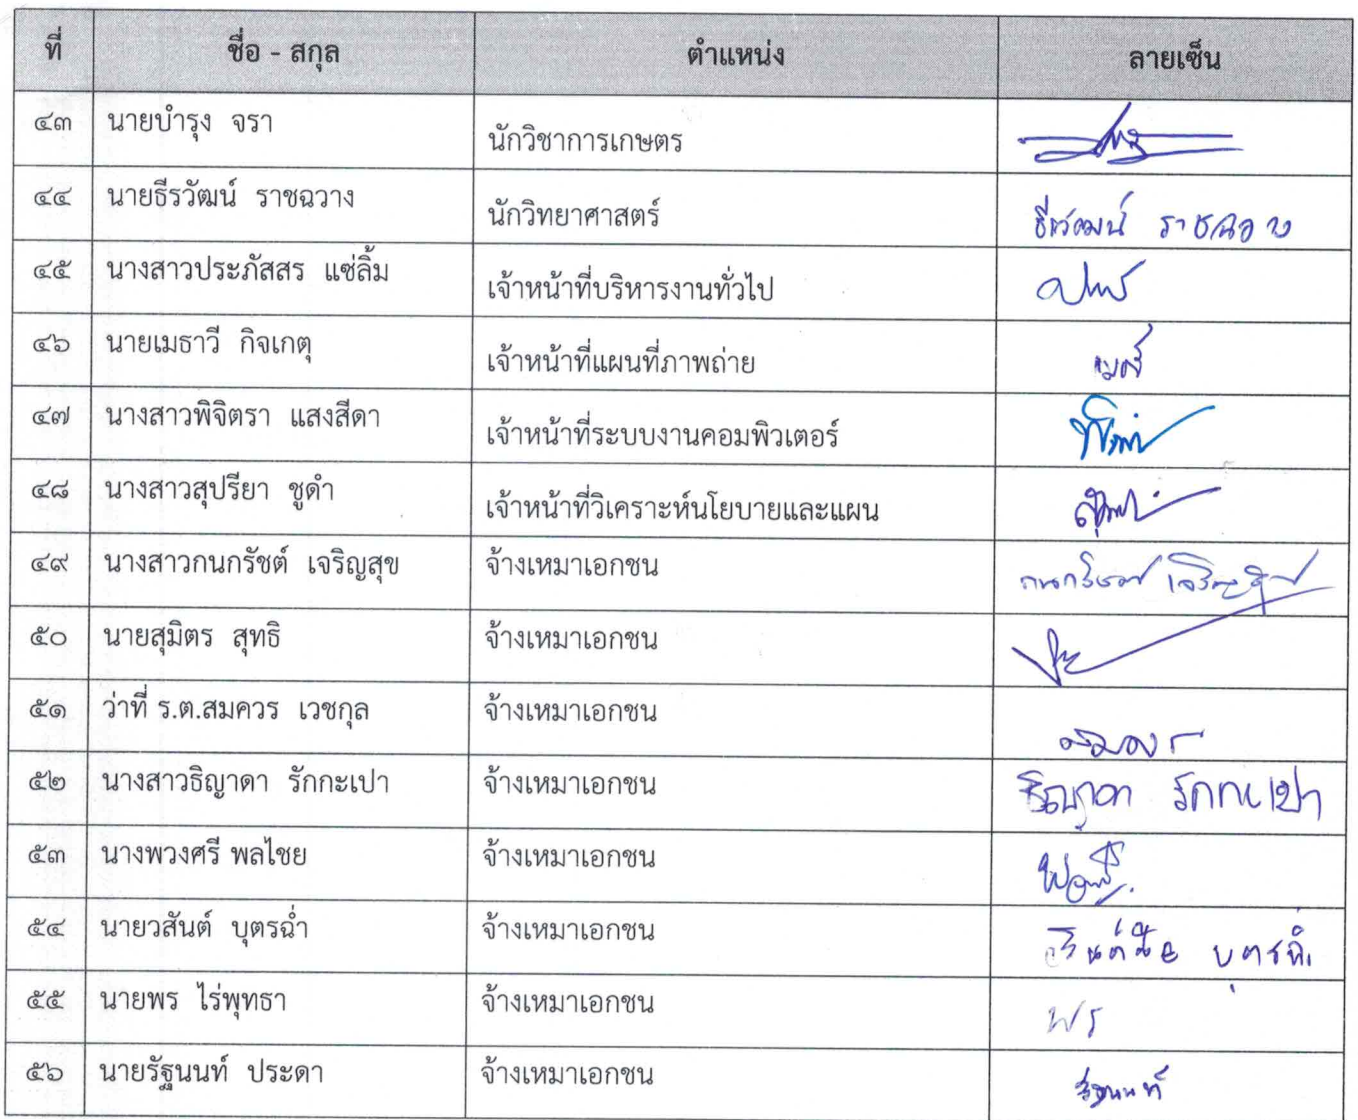 ที่ ชื่อ - สกุล ตำแหน่ง ลายเซ็น
๔๓ นายบำรุง จรา นักวิชาการเกษตร
๔๔ นายธีรวัฒน์ ราชฉวาง นักวิทยาศาสตร์ ธีรวัฒน์ ราชฉวาง
๔๕ นางสาวประภัสสร แซ่ลิ้ม เจ้าหน้าที่บริหารงานทั่วไป
๔๖ นายเมธาวี กิจเกตุ เจ้าหน้าที่แผนที่ภาพถ่าย
๔๗ นางสาวพิจิตรา แสงสีดา เจ้าหน้าที่ระบบงานคอมพิวเตอร์
๔๘ นางสาวสุปรียา ชูดำ เจ้าหน้าที่วิเคราะห์นโยบายและแผน
๔๙ นางสาวกนกรัชต์ เจริญสุข จ้างเหมาเอกชน กนกรัชต์ เจริญสุข
๕๐ นายสุมิตร สุทธิ จ้างเหมาเอกชน
๕๑ ว่าที่ ร.ต.สมควร เวชกุล จ้างเหมาเอกชน
๕๒ นางสาวธิญาดา รักกะเปา จ้างเหมาเอกชน ธิญาดา รักกะเปา
๕๓ นางพวงศรี พลไชย จ้างเหมาเอกชน
๕๔ นายวสันต์ บุตรฉ่ำ จ้างเหมาเอกชน บุตรฉ่ำ
๕๕ นายพร ไร่พุทธา จ้างเหมาเอกชน พร
๕๖ นายรัฐนนท์ ประดา จ้างเหมาเอกชน รัฐนนท์